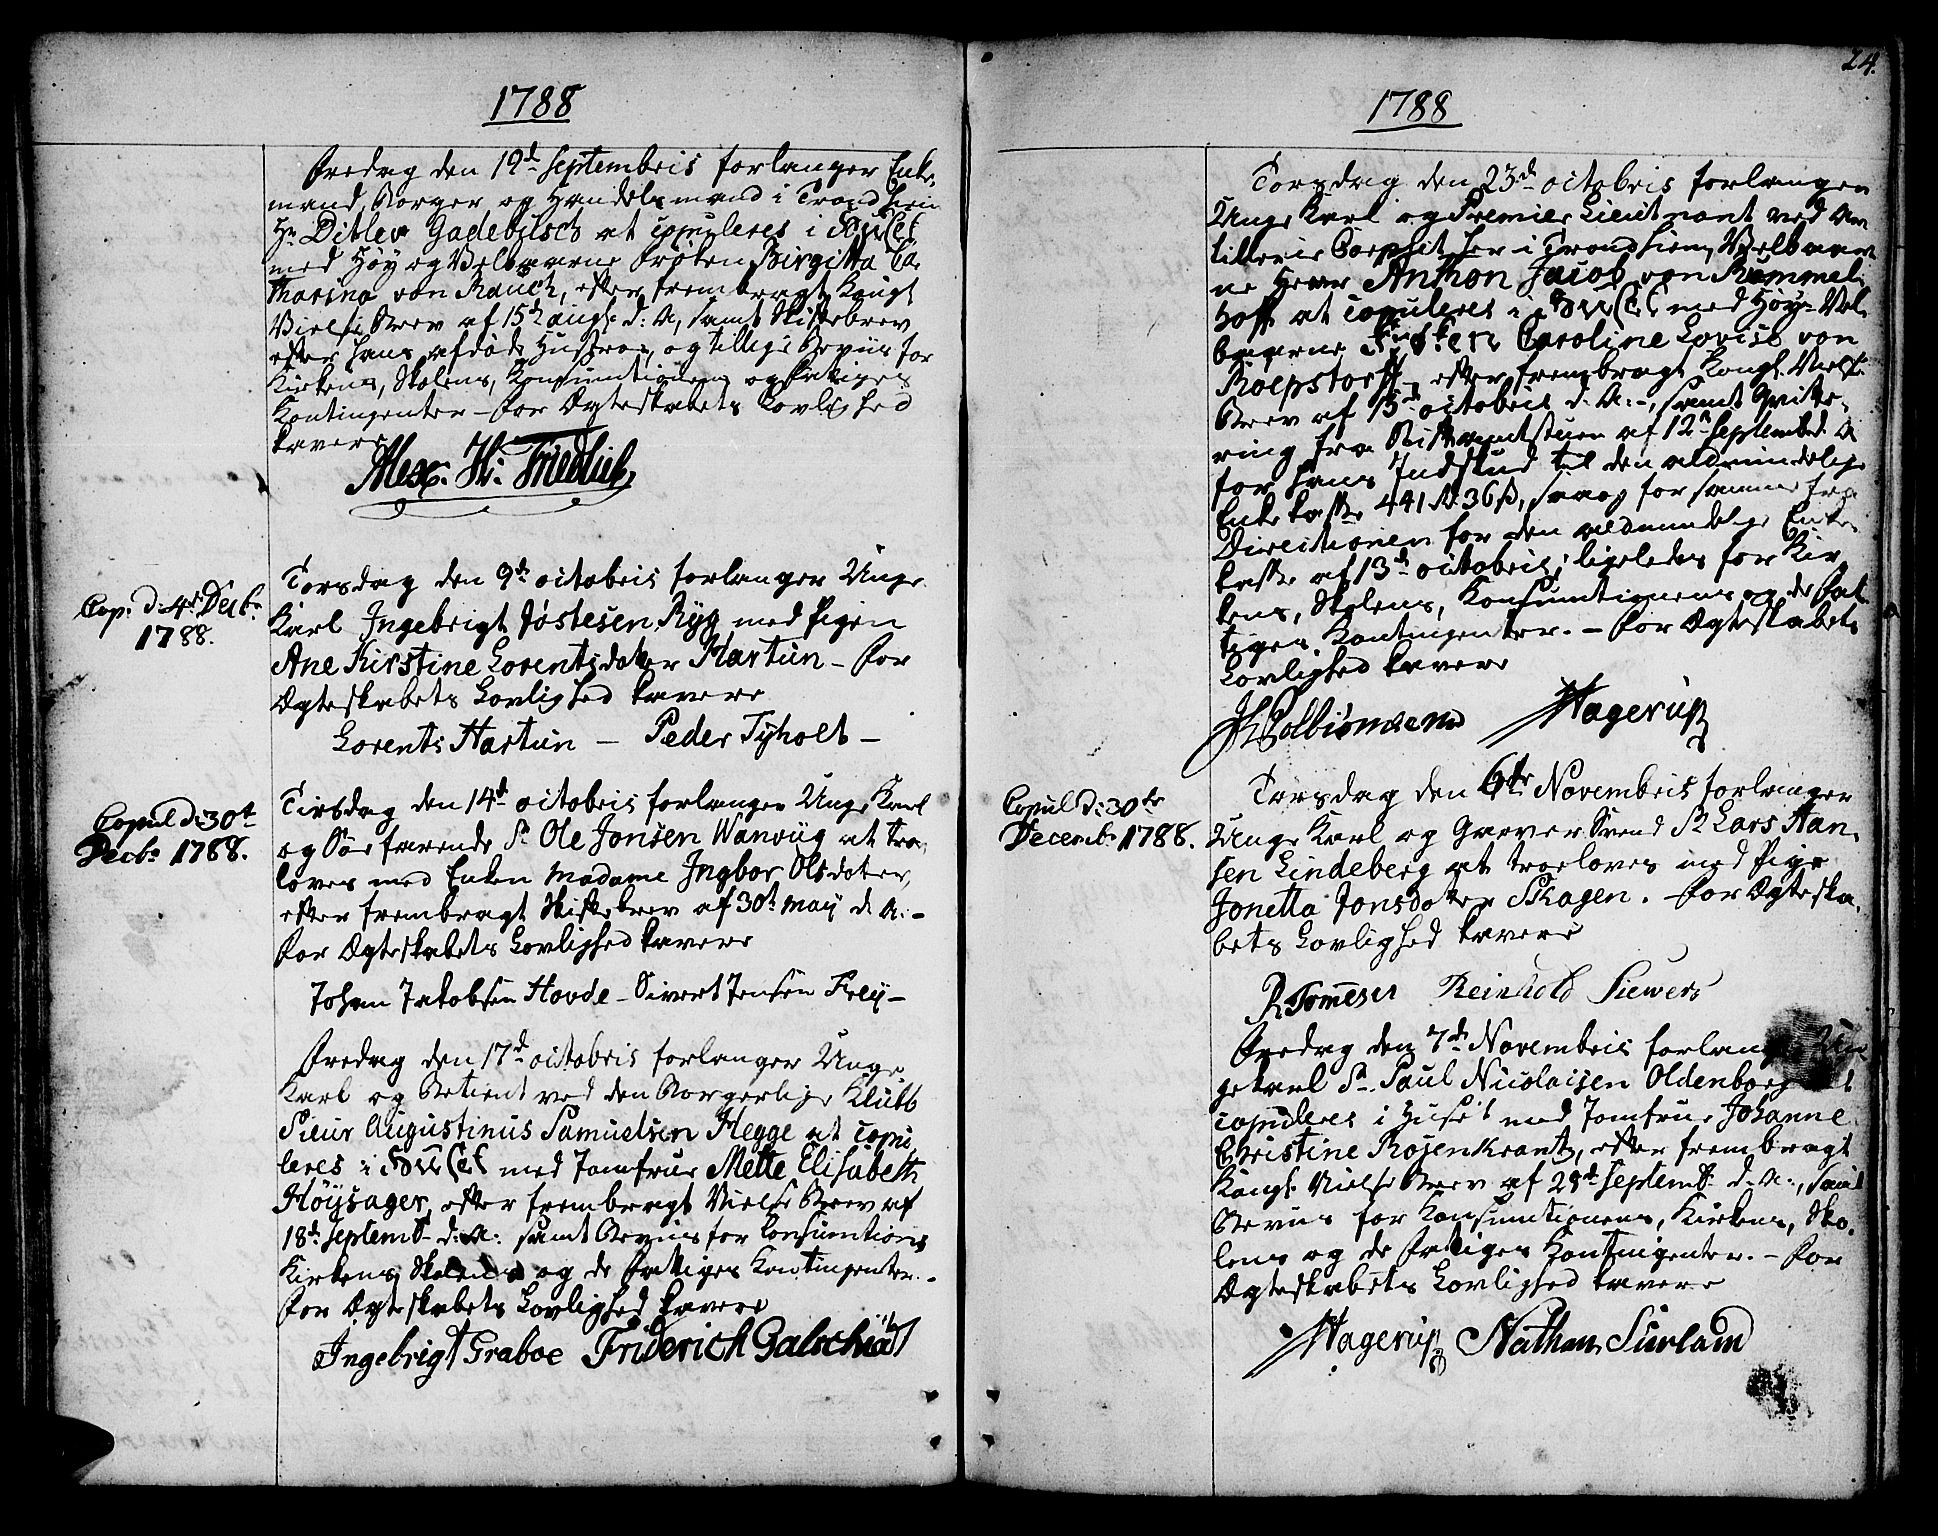 1788
Fredag den 19d. Septembris forlanger Enke-
mand, Borger og Handelsmand i Trondhiem
Hr. Ditlev Gadebusch at copuleres i Huuset
med Høy og Velbaarne Frøken Birgitta Ca-
tharina von Rauch, efter frembragt Kongl.
Vielse Brev af 15de aug. d: A, samt Skiftebrev
efter hans afdøde Hustroe, og tillige Beviis for
Kirkens, Skolens, Konsumtionens og Fatiges
Kontingenter – For Ægteskabets Lovlighed
kavere
Alex. H: Friedlieb
Cop: d: 4de Decbr.
1788.
Torsdag den 9de octobris forlanger Unge
Karl Ingebrigt Jøstesen Ryg med Pigen
Ane Kirstine Lorentsdater Hartun – For
Ægteskabets Lovlighed kavere
Lorents Hartun – Peder Tyholt –
Copul d: 30te
Decbr 1788.
Tirsdag den 14d. octobris forlanger Unge Karl
og Søefarende Sr. Ole Jonsen Wanvüg at tro-
loves med Enken Madame Ingbor Olsdater,
efter frembragt Skiftebrev af 30t May d. A: –
For Ægteskabets Lovlighed kavere
Johan Jakobsen Hovde – Sivert Jensen Frey –
Fredag den 17d octobris forlanger Unge
Karl og Betient ved den Borgerlige Klubb
Sieur Augustinus Samuelsen Hegge at copu-
leres i Huuset med Jomfrue Mette Elisabeth
Höysager, efter frembragt Vielse Brev af
18d: Septemb. d: A: samt Beviis for Consumtions
Kirkens, Skolens og de Fattiges Kontingenter. –
For Ægteskabets Lovlighed kavere
Ingebrigt Graboe Friderich Galschiøtt
24.
1788
Torsdag den 23d octobris forlanger
Unge Karl og Premier Lieutnant ved Ar-
tillerie Corpset her i Trondhiem, Velbaar-
ne Herr Anthon Jacob von Remmel-
hoff at copuleres i Huuset med Høy-Vel-
baarne Frøken Caroline Lovise von
Roepstorff, efter frembragt Kongl. Vielse
Brev af 13d octobris d. A: –, samt Qvitte-
ring fra Stiftamtstuen af 12te Septemb. d. A
for hans Indskud til den almindelige
Enkekasse 441 Rd. 36 ß, saa og for samme fra
Directionen for den almindelige Enke-
kasse af 13d octobris; ligeledes for Kir-
kens, Skolens, Konsumtionens og de Fat-
tiges Kontingenter. – For Ægteskabets
Lovlighed kavere
Hagerup
Copul d: 30te
Decembr 1788.
Torsdag den 6te Novembris forlanger
Unge Karl og Garver Svend Sr Lars Han-
sen Lindeberg at troeloves med Pige
Jonetta Jonsdater Skagen. – For Ægteska-
bets Lovlighed kavere
R Tomesen Reinhold Siewers
Fredag den 7de Novembris forlanger Un-
gekarl Sr. Paul Nicolaisen Oldenborg at
copuleres i Huset med Jomfrue Johanne
Christine Rosenkrantz, efter frembragt
Kongl. Vielse Brev af 28de Septemb. d. A:, samt
Beviis for Konsumtionens, Kirkens, Sko-
lens og de Fatiges Kontingenter. – For
Ægteskabets Lovlighed kavere
Hagerup Nathan Surlam